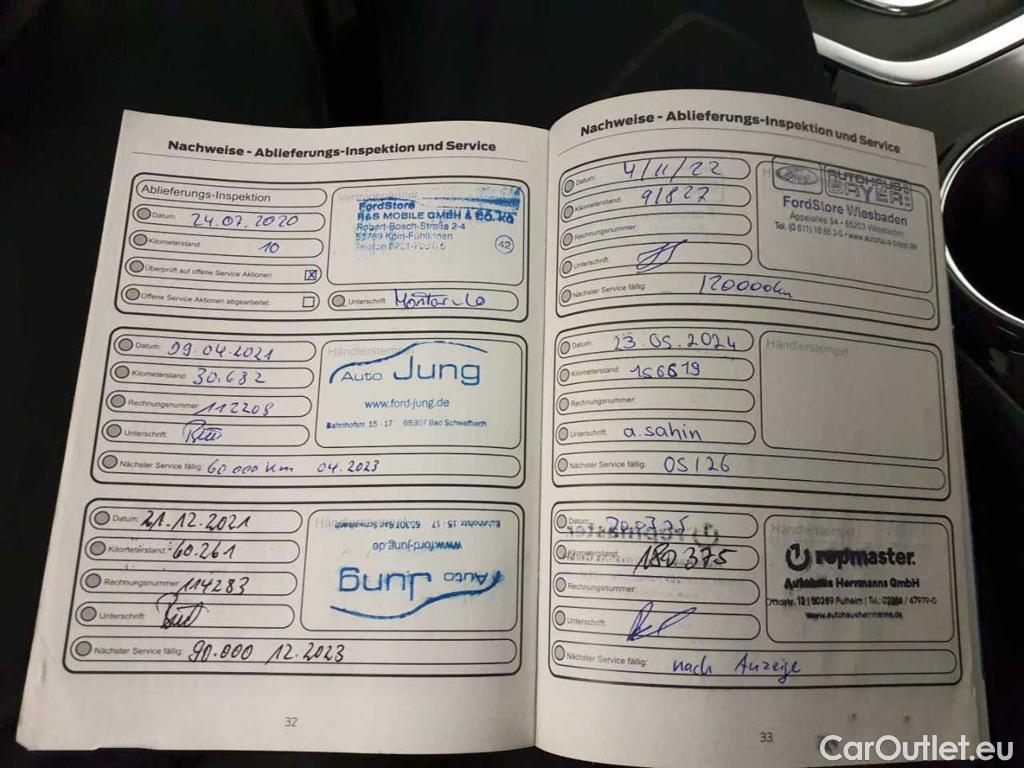 Nachweise - Ablieferungs-Inspektion und Service
Ablieferungs-Inspektion
Datum: 24.07.2020
Kilometerstand 10
Überprüft auf offene Service Aktionen X
Offene Service Aktionen abgearbeitet:
Vertragspartner
FordStore
R&S MOBILE GMBH & CO. KG
Robert-Bosch-Straße 2-4
53769 Köln-Fühlingen
Telefon
42
Unterschrift:
Datum: 29.04.2021
Kilometerstand: 30.632
Rechnungsnummer: 112208
Unterschrift:
Nächster Service fällig: 60.000 km 04.2023
Händlerstempel
Auto Jung
www.ford-jung.de
Bahnhofstr. 15 - 17 65307 Bad Schwalbach
Datum: 21.12.2021
Kilometerstand: 60.261
Rechnungsnummer: 114283
Unterschrift:
Nächster Service fällig: 90.000 12.2023
Bahnhofstr. 15 - 17 65307 Bad Schwalbach
www.ford-jung.de
Auto Jung
32
Nachweise - Ablieferungs-Inspektion und Service
Datum: 4/11/22
Kilometerstand: 91827
Rechnungsnummer:
Unterschrift:
Nächster Service fällig: 120000km
Ford AUTOHAUS BAYER
FordStore Wiesbaden
65203 Wiesbaden
www.autohaus-bayer.de
Datum: 23.05.2024
Kilometerstand: 156619
Rechnungsnummer:
Unterschrift: a.sahin
Nächster Service fällig: 05/26
Händlerstempel
Datum:
Kilometerstand: 180.375
Rechnungsnummer:
Unterschrift:
Nächster Service fällig: nach Anzeige
Händlerstempel
repmaster.
Autohaus Herrmanns GmbH
Ottostr. 12 | 50259 Pulheim | Tel.: / 47979-0
www.autohausherrmanns.de
33
CarOutlet.eu